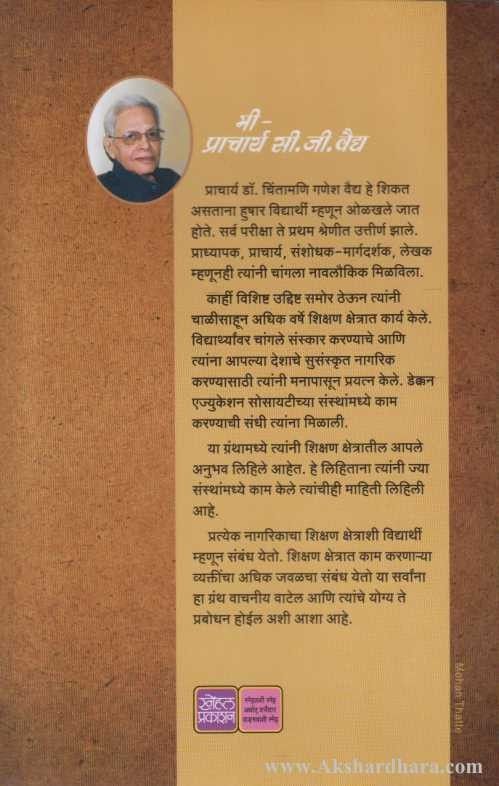 मी -
प्राचार्य सी. जी. वैद्य
प्राचार्य डॉ. चिंतामणि गणेश वैद्य हे शिकत
असताना हुषार विद्यार्थी म्हणून ओळखले जात
होते. सर्व परीक्षा ते प्रथम श्रेणीत उत्तीर्ण झाले.
प्राध्यापक, प्राचार्य, संशोधक-मार्गदर्शक, लेखक
म्हणूनही त्यांनी चांगला नावलौकिक मिळविला.
काही विशिष्ट उद्दिष्ट समोर ठेऊन त्यांनी
चाळीसाहून अधिक वर्षे शिक्षण क्षेत्रात कार्य केले.
विद्यार्थ्यांवर चांगले संस्कार करण्याचे आणि
त्यांना आपल्या देशाचे सुसंस्कृत नागरिक
करण्यासाठी त्यांनी मनापासून प्रयत्न केले. डेक्कन
एज्युकेशन सोसायटीच्या संस्थांमध्ये काम
करण्याची संधी त्यांना मिळाली.
या ग्रंथामध्ये त्यांनी शिक्षण क्षेत्रातील आपले
अनुभव लिहिले आहेत. हे लिहिताना त्यांनी ज्या
संस्थांमध्ये काम केले त्यांचीही माहिती लिहिली
आहे.
प्रत्येक नागरिकाचा शिक्षण क्षेत्राशी विद्यार्थी
म्हणून संबंध येतो. शिक्षण क्षेत्रात काम करणाऱ्या
व्यक्तींचा अधिक जवळचा संबंध येतो या सर्वांना
हा ग्रंथ वाचनीय वाटेल आणि त्यांचे योग्य ते
प्रबोधन होईल अशी आशा आहे.
स्नेहल
प्रकाशन
Mohan Thatte
www.Akshardhara.com